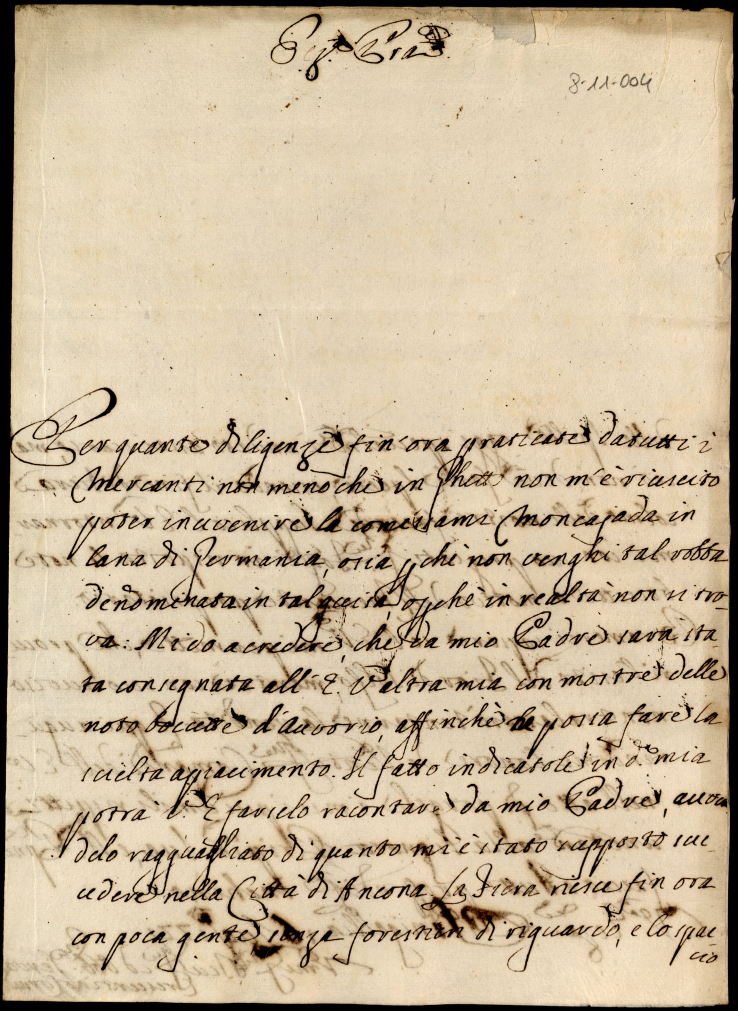 8-11-004
Per quante diligenze fin'ora praticate da tutti i
Mercanti non meno che in Ghett non m'è riuscito
poter invenire la comessami Moncajada in
lana di Germania, osia pchè non venghi tal robba
denominata in tal guisa, opchè in realtà non si tro-
va: Mi do a credere, che da mio Padre sarà sta-
ta consegnata all' E. V. altra mia con mostre delle
note boccette d'Avvorio, affinchè le possa fare la
scielta a piacimento. Il fatto indicatole in d.ª mia
potrà V. E farselo racontare da mio Padre, aven
delo ragguagliato di quanto mi è stato supposto suc-
cedere nella Città di Ancona. La Fiera riesce fin ora
con poca gente, senza forestieri di riguardo, e lo spac-
cio